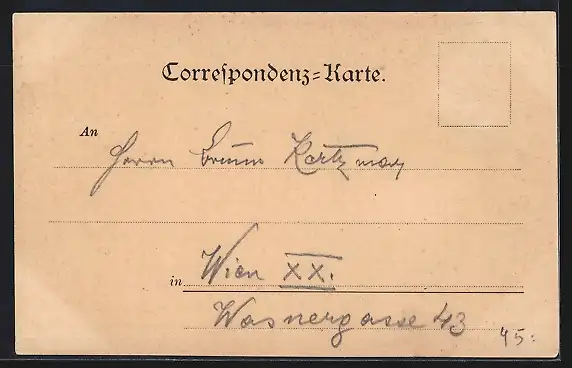 Correſpondenz=Karte.
An Herrn Bruno
in Wien XX.
Wasnergasse 43
45: